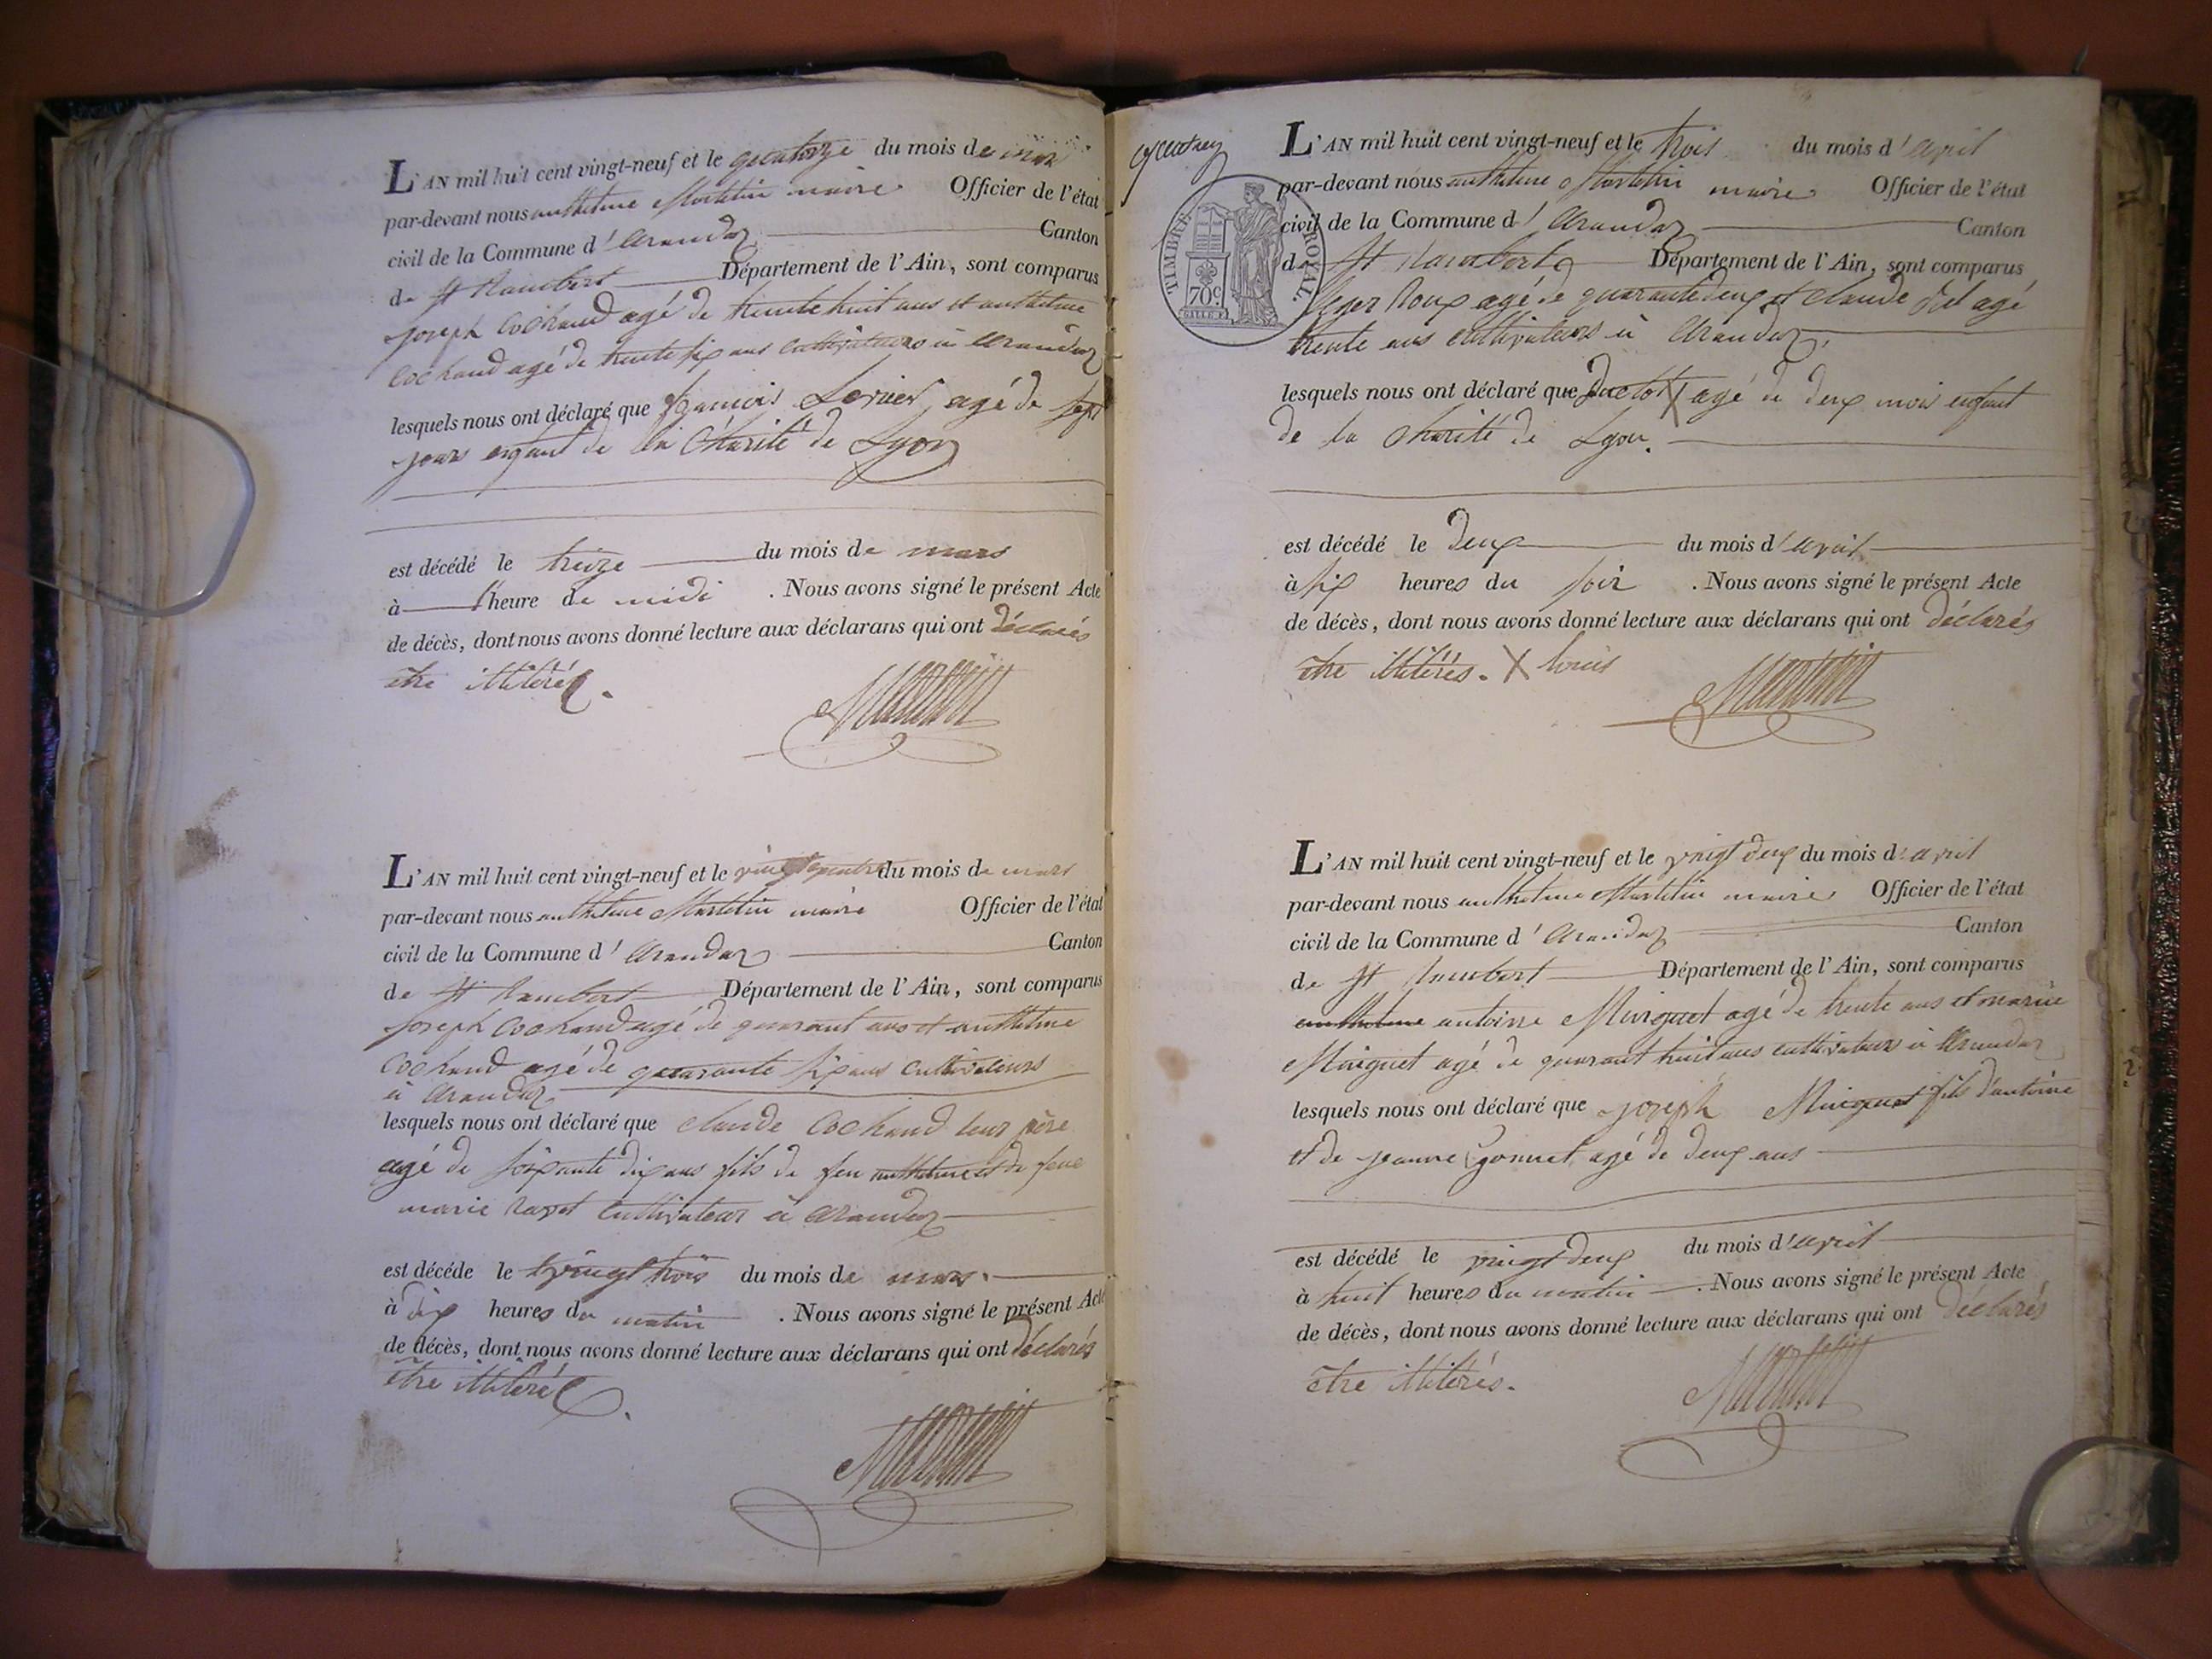 L'AN mil huit cent vingt-neuf et le quatorze du mois de mars
par-devant nous anthelme Martelin maire Officier de l'état
civil de la Commune d'arandaz Canton
de St Rambert Département de l'Ain, sont comparus
joseph Cochand agé de trente huit ans et anthelme
Cochand agé de trente six ans cultivateurs à arandaz
lesquels nous ont déclaré que françois agé de sept
jours enfant de la Charité de Lyon
est décédé le treize du mois de mars
à l'heure de midi . Nous avons signé le présent Acte
de décès, dont nous avons donné lecture aux déclarans qui ont déclarés
etre illiterés.
Martelin
L'AN mil huit cent vingt-neuf et le vingt quatre du mois de mars
par-devant nous anthelme Martelin maire Officier de l'état
civil de la Commune d'arandaz Canton
de St Rambert Département de l'Ain, sont comparus
joseph Cochand agé de quarant ans et anthelme
Cochand agé de quarante six ans cultivateurs
à arandaz
lesquels nous ont déclaré que claude Cochand leur père
agé de soixante dix ans fils de feu anthelme et de feue
marie cultivateur à arandaz
est décédé le vingt trois du mois de mars.
à dix heures du matin . Nous avons signé le présent Acte
de décès, dont nous avons donné lecture aux déclarans qui ont déclarés
etre illiterés.
Martelin
TIMBRE ROYAL
70c
L'AN mil huit cent vingt-neuf et le trois du mois d'avril
par-devant nous anthelme Martelin maire Officier de l'état
civil de la Commune d'arandaz Canton
de St Rambert Département de l'Ain, sont comparus
leger Roux agé de quarante deux et claude agé
trente ans cultivateurs à arandaz,
lesquels nous ont déclaré que X agé de deux mois enfant
de la Charité de Lyon.
est décédé le deux du mois d'avril
à six heures du soir . Nous avons signé le présent Acte
de décès, dont nous avons donné lecture aux déclarans qui ont déclarés
etre illitérés. X louis
Martelin
L'AN mil huit cent vingt-neuf et le vingt deux du mois d'avril
par-devant nous anthelme Martelin maire Officier de l'état
civil de la Commune d'arandaz Canton
de St Rambert Département de l'Ain, sont comparus
anthelme antoine Minguet agé de trente ans et marin
Minguet agé de quarant huit ans cultivateurs à arandaz
lesquels nous ont déclaré que joseph Minguet fils d'antoine
et de jeanne gonnet agé de deux ans
est décédé le vingt deux du mois d'avril
à huit heures du matin . Nous avons signé le présent Acte
de décès, dont nous avons donné lecture aux déclarans qui ont déclarés
etre illitérés.
Martelin